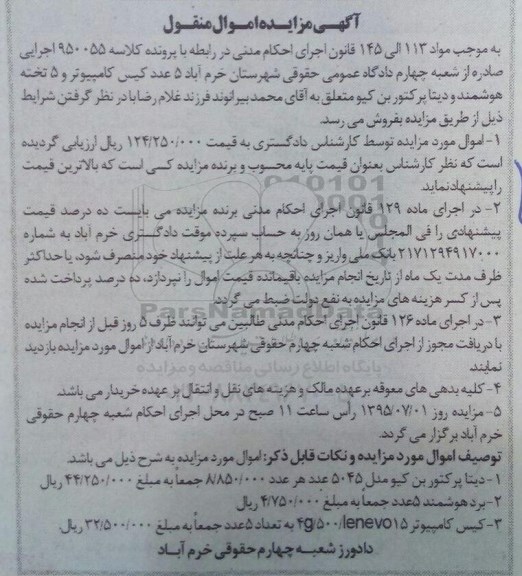 آگهی مزایده اموال منقول
به موجب مواد ۱۱۳ الی ۱۴۵ قانون اجرای احکام مدنی در رابطه با پرونده کلاسه ۹۵۰۰۵۵ اجرایی
صادره از شعبه چهارم دادگاه عمومی حقوقی شهرستان خرم آباد ۵ عدد کیس کامپیوتر و ۵ تخته
هوشمند و دیتا پرکتور بن کیو متعلق به آقای محمد بیرانوند فرزند غلام رضا با در نظر گرفتن شرایط
ذیل از طریق مزایده بفروش می رسد.
۱- اموال مورد مزایده توسط کارشناس دادگستری به قیمت ۱۲۴/۲۵۰/۰۰۰ ریال ارزیابی گردیده
است که نظر کارشناس بعنوان قیمت پایه محسوب و برنده مزایده کسی است که بالاترین قیمت
را پیشنهاد نماید.
۲- در اجرای ماده ۱۲۹ قانون اجرای احکام مدنی برنده مزایده می بایست ده درصد قیمت
پیشنهادی را فی المجلس یا همان روز به حساب سپرده موقت دادگستری خرم آباد به شماره
۲۱۷۱۲۹۴۹۱۷۰۰۰ بانک ملی واریز و چنانچه به هر علت از پیشنهاد خود منصرف شود، یا حداکثر
ظرف مدت یک ماه از تاریخ انجام مزایده باقیمانده قیمت اموال را نپردازد، ده درصد پرداخت شده
پس از کسر هزینه های مزایده به نفع دولت ضبط می گردد.
۳- در اجرای ماده ۱۲۶ قانون اجرای احکام مدنی طالبین می توانند ظرف ۵ روز قبل از انجام مزایده
با دریافت مجوز از اجرای احکام شعبه چهارم حقوقی شهرستان خرم آباد از اموال مورد مزایده بازدید
نمایند.
۴- کلیه بدهی های معوقه بر عهده مالک و هزینه های نقل و انتقال بر عهده خریدار می باشد.
۵- مزایده روز ۱۳۹۵/۰۷/۰۱ رأس ساعت ۱۱ صبح در محل اجرای احکام شعبه چهارم حقوقی
خرم آباد برگزار می گردد.
توصیف اموال مورد مزایده و نکات قابل ذکر: اموال مورد مزایده به شرح ذیل می باشد.
۱- دیتا پرکتور بن کیو مدل ۵۰۴۵ عدد هر عدد ۸/۸۵۰/۰۰۰ جمعاً به مبلغ ۴۴/۲۵۰/۰۰۰ ریال
۲- برد هوشمند ۵ عدد جمعاً به مبلغ ۴/۷۵۰/۰۰۰ ریال
۳- کیس کامپیوتر 4g/۵۰۰/lenevo۱۵ به تعداد ۵ عدد جمعاً به مبلغ ۳۲/۵۰۰/۰۰۰ ریال.
دادورز شعبه چهارم حقوقی خرم آباد
ParsNamadData
پایگاه اطلاع رسانی مناقصه و مزایده